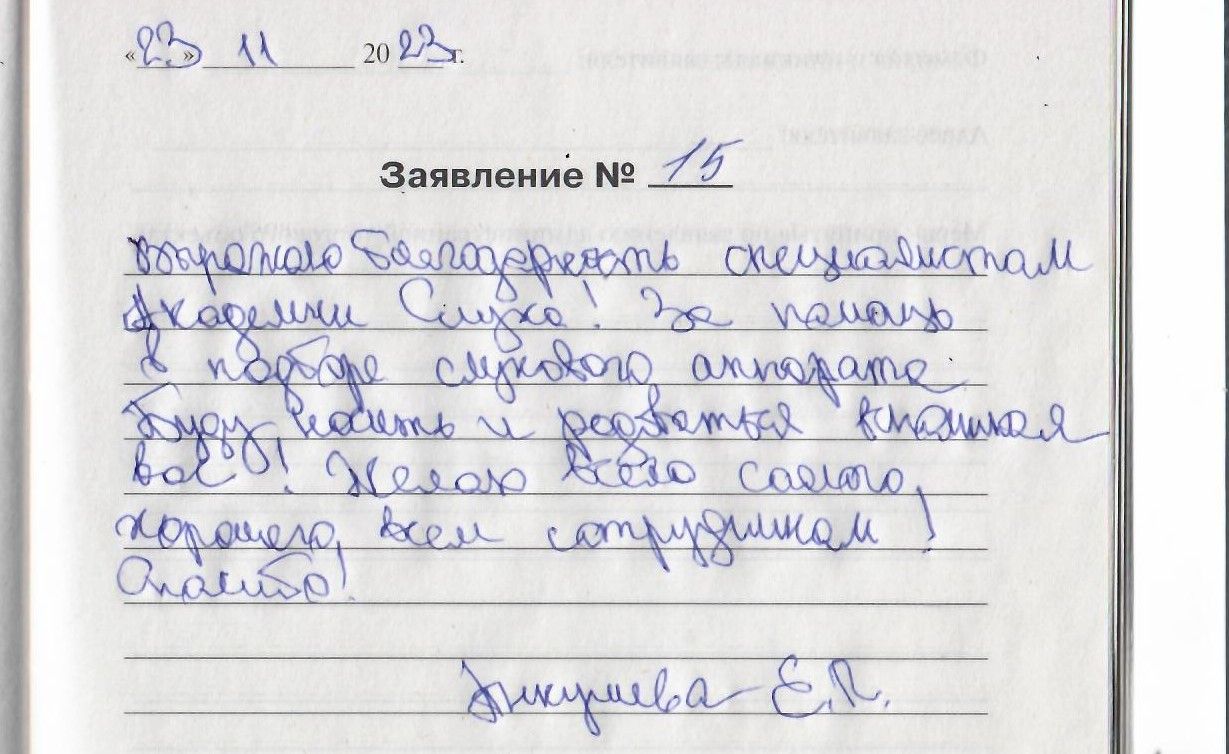 «23» 11 2023 г.
Заявление № 15
Выражаю благодарность специалистам
Академии Слуха! За помощь
в подборе слухового аппарата.
Буду носить и радоваться вспоминая
вас! Желаю всего самого,
хорошего, всем сотрудникам!
Спасибо!
Е.П.